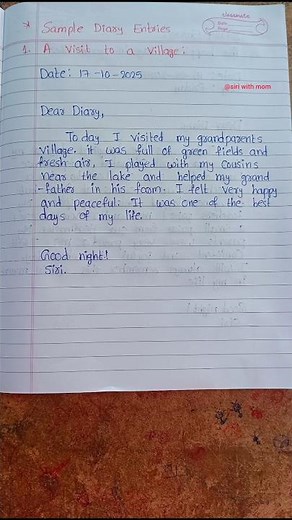 classmate
Date
Page
* Sample Diary Entries
1. A Visit to a Village:
Date: 17-10-2025
@siri with mom
Dear Diary,
To day I visited my grandparents
village. it was full of green fields and
fresh air, I played with my cousins
near the lake and helped my grand
-father in his farm. I felt very happy
and peaceful. It was one of the best
days of my life.
Good night!
Siri.